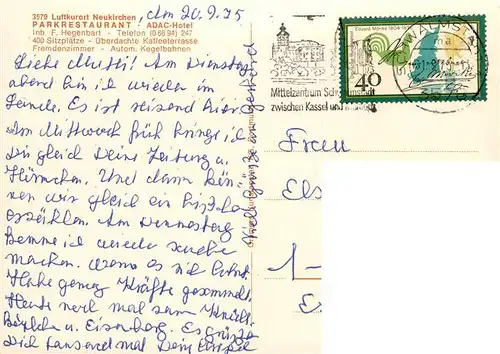 3579 Luftkurort Neukirchen
PARKRESTAURANT · ADAC-Hotel
Inh. F. Hegenbart · Tel. (0 66 94) 247
400 Sitzplätze - Überdachte Kaffeeterrasse
Fremdenzimmer - Autom. Kegelbahnen
Am 20.9.75
Liebe Mutti! Am Dienstag
abend bin ich wieder im
Lande. Es ist reisend hier.
Am Mittwoch früh bringe ich
Dir gleich Deine Zeitung u.
Hörnchen. Und dann kön-
nen wir gleich ein bißchen
erzählen. Am Donnerstag
komme ich wieder
machen. wenn es sich lohnt.
Habe genug Kräfte gesammelt.
Heute noch mal zum Knüll-
u. Eisenberg. Es grüßt
Dich tausend mal Dein
Viele Grüße an
Eduard Mörike 1804-1875
40
Mittelzentrum
zwischen Kassel und
Frau
Els
1-